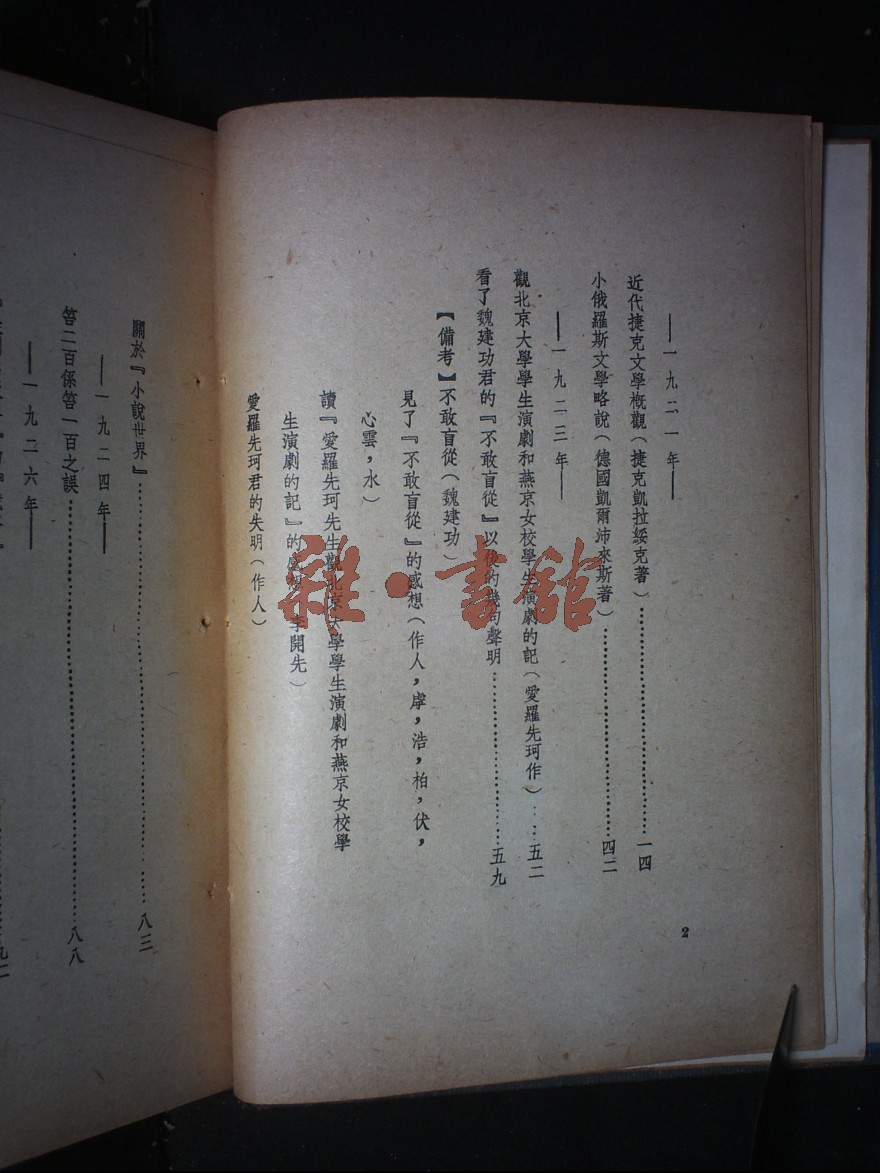 ——一九二一年——
近代捷克文學概觀（捷克凱拉綏克著）……………………一四
小俄羅斯文學略說（德國凱爾沛來斯著）……………………四二
——一九二三年——
觀北京大學學生演劇和燕京女校學生演劇的記（愛羅先珂作）……五二
看了魏建功君的『不敢盲從』以後的幾句聲明……………………五九
【備考】不敢盲從（魏建功）
見了『不敢盲從』的感想（作人，廖，浩，柏，伏，
心雲，水）
讀『愛羅先珂先生觀北京大學學生演劇和燕京女校學
生演劇的記』的感想（李開先）
愛羅先珂君的失明（作人）
2
關於『小說世界』……………………八三
——一九二四年——
答二百係答一百之誤……………………八八
——一九二六年——
雜·書館